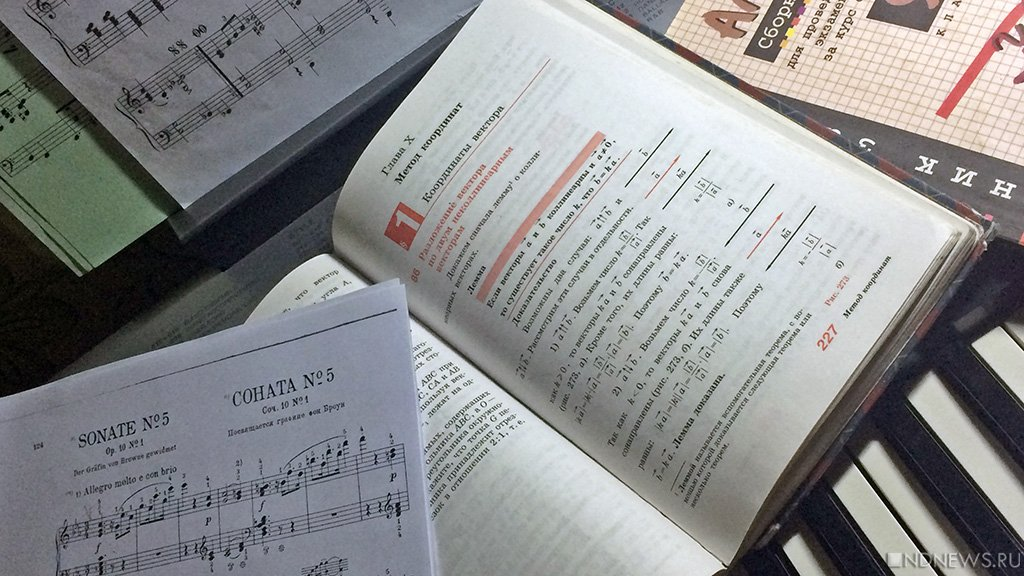 Глава X
Метод координат
§ 1
Координаты вектора
86
Разложение вектора
по двум неколлинеарным
векторам
Докажем сначала лемму¹ о колли-
неарных векторах.
Лемма
Если векторы a и b коллинеарны и a ≠ 0,
то существует такое число k, что b = ka.
Доказательство
Возможны два случая: a↑↑b и
a↑↓b. Рассмотрим эти случаи в отдельности.
1) a↑↑b. Возьмем число k =
|b|
|a|
. Так
как k ≥ 0, то векторы ka и b сонаправлены
(рис. 273, а). Кроме того, их длины равны:
|ka| = |k||a| =
|b|
|a|
|a| = |b|. Поэтому b = ka.
2) a↑↓b. Возьмем число k = −
|b|
|a|
.
Так как k < 0, то векторы ka и b снова
сонаправлены (рис. 273, б). Их длины также
равны: |ka| = |k||a| =
|b|
|a|
|a| = |b|. Поэтому
b = ka. Лемма доказана.
Леммой называется вспомогательная теорема, с по-
мощью которой доказывается следующая теорема или
несколько теорем.
b
a
ka
k =
|b|
|a|
а)
b
a
ka
k = −
|b|
|a|
б)
Рис. 273
227
Метод координат
SONATE Nº 5
Op. 10 Nº 1
Der Gräfin von Browne gewidmet
1) Allegro molto e con brio
СОНАТА Nº 5
Соч. 10 Nº 1
Посвящается графине фон Броун
f
p
f
p
Сборн
для прове
экзаме
за курс
НИК З
NDNEWS.RU